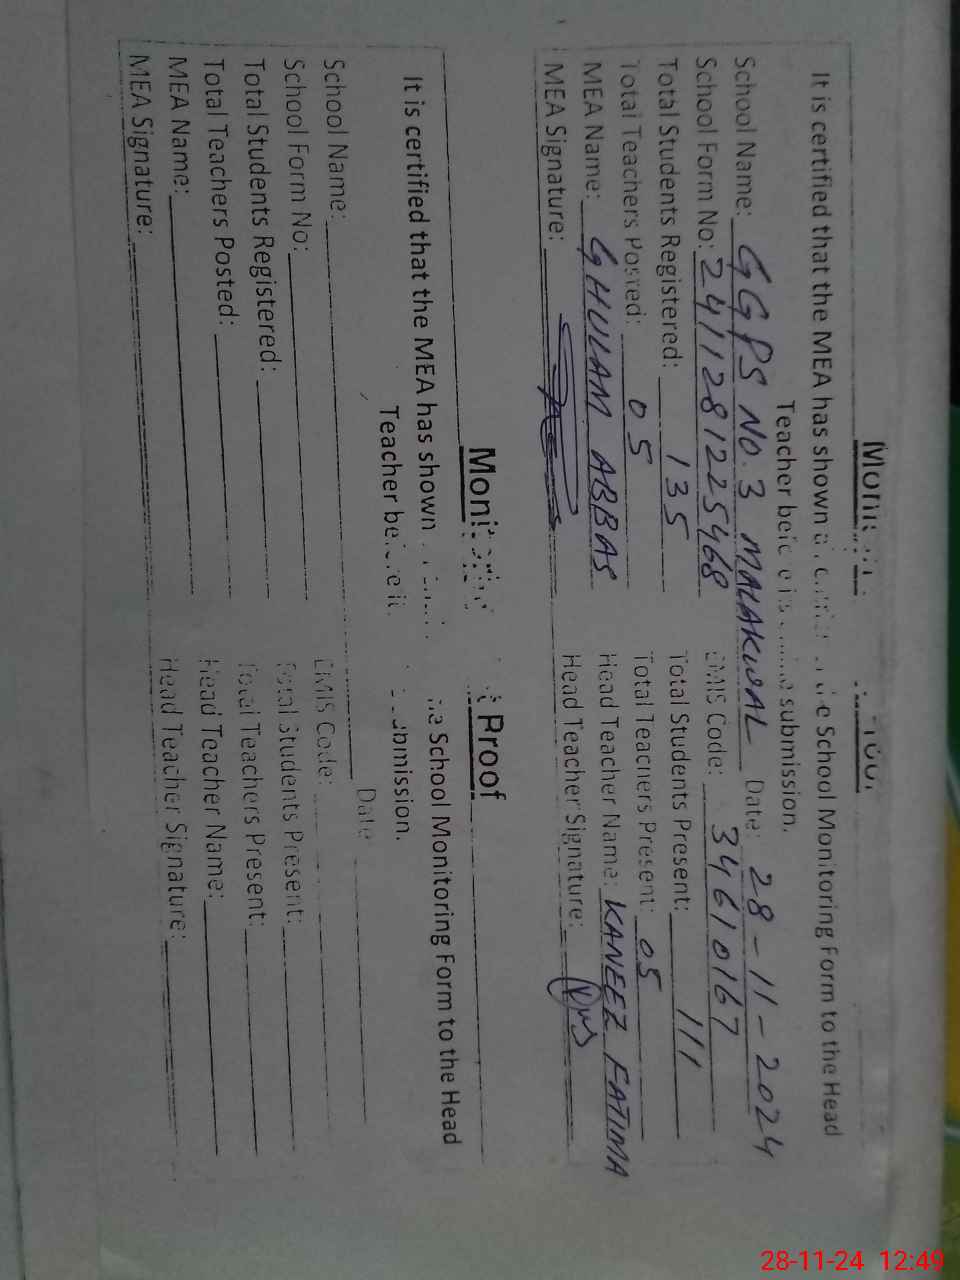 It is certified that the MEA has shown School Monitoring Form to the Head
Teacher submission.
School Name: GGPS NO.3 MALAKWAL Date: 28-11-2024
School Form No: 2411281225468 EMIS Code: 34610167
Total Students Registered: 135 Total Students Present: 111
Total Teachers Posted: 05 Total Teachers Present: 05
MEA Name: GHULAM ABBAS Head Teacher Name: KANEEZ FATIMA
MEA Signature: Head Teacher Signature:
Proof
It is certified that the MEA has shown School Monitoring Form to the Head
Teacher
School Name: Date
School Form No: EMIS Code:
Total Students Registered: Total Students Present:
Total Teachers Posted: Total Teachers Present:
MEA Name: Head Teacher Name:
MEA Signature: Head Teacher Signature:
28-11-24 12:49